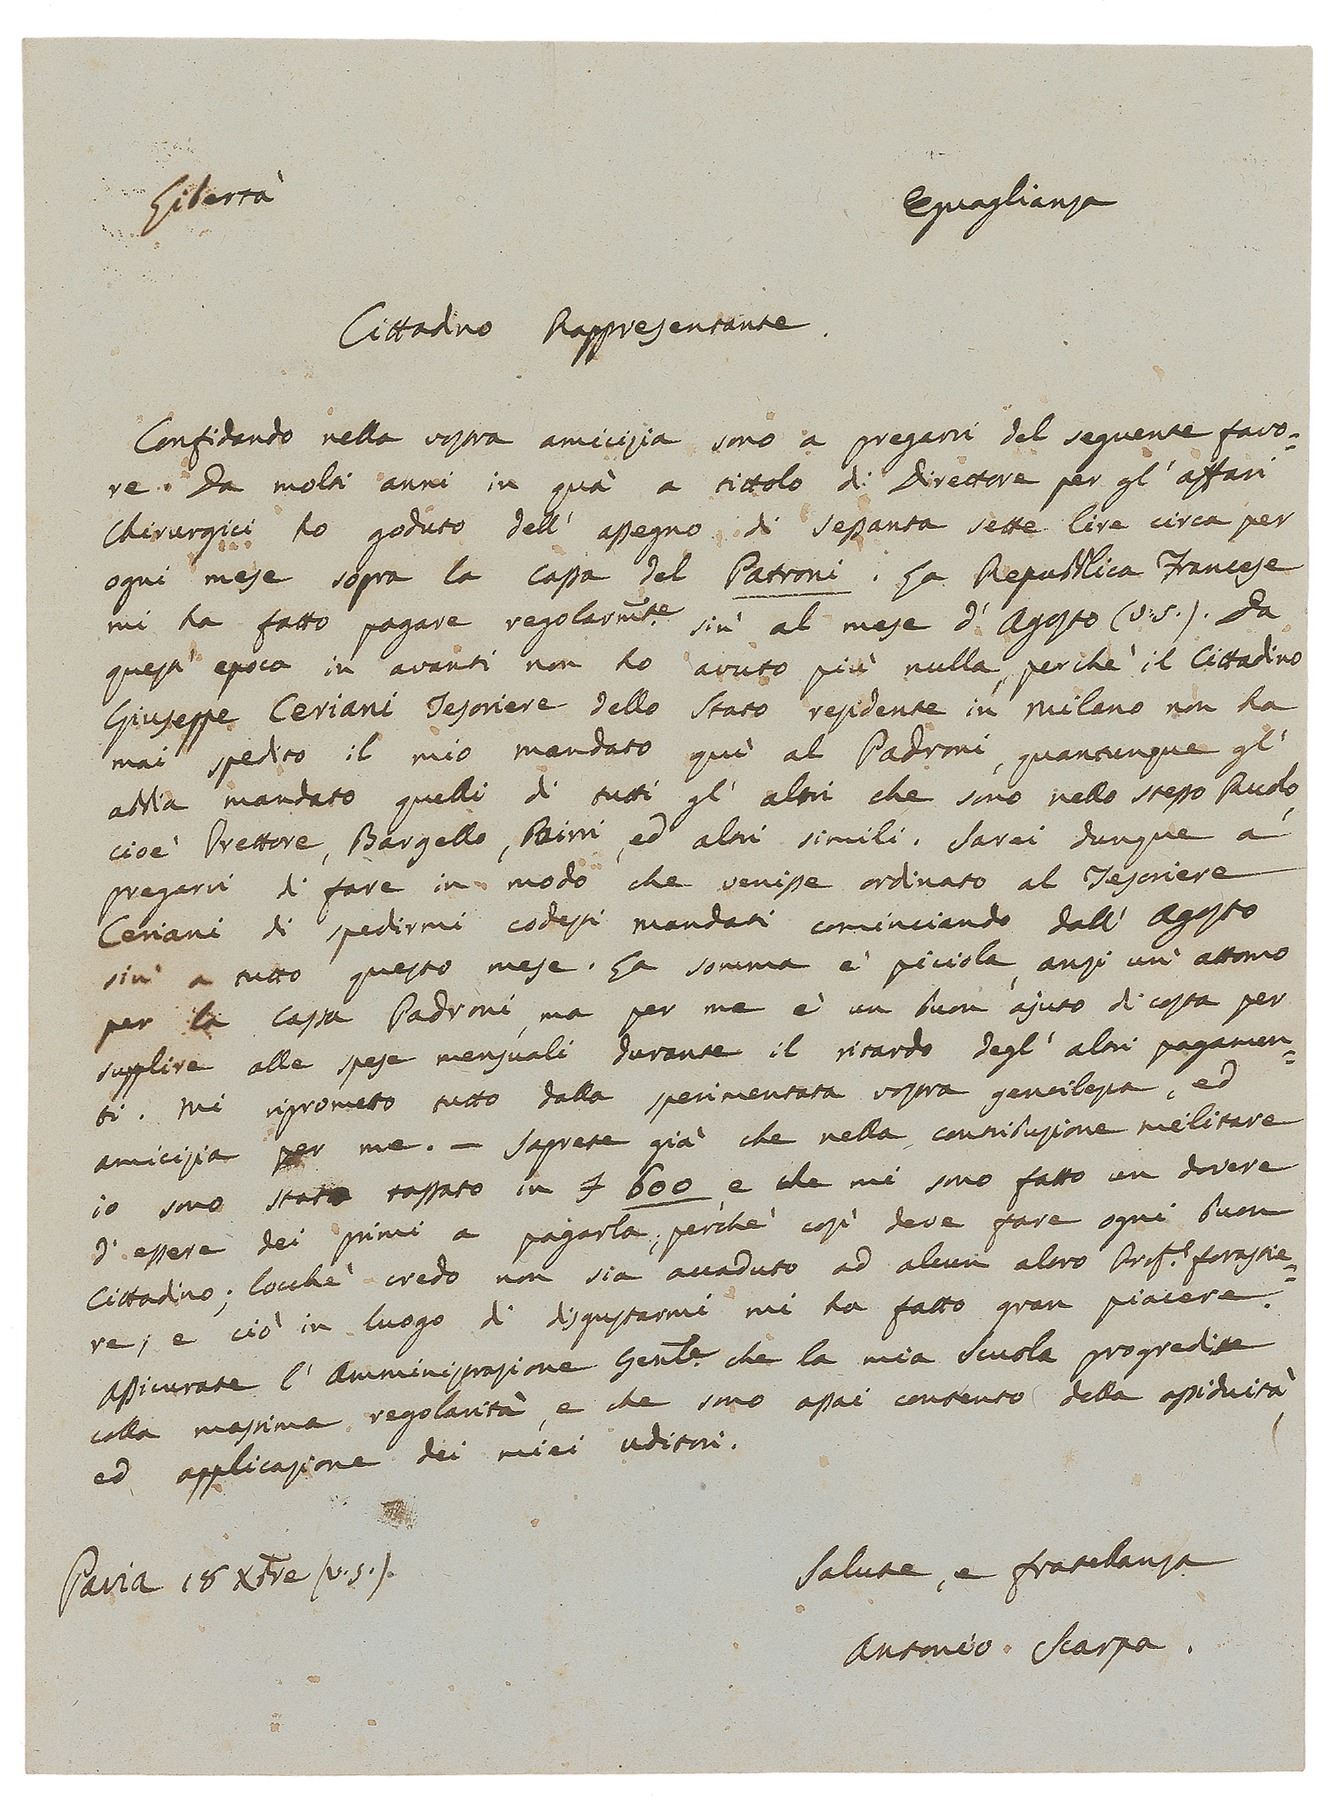 Libertà Eguaglianza
Cittadino Rappresentante.
Confidando nella vostra amicizia sono a pregarvi del seguente favo=
re. Da molti anni in quà a tittolo di Direttore per gl' affari
Chirurgici ho goduto dell' assegno di sessanta sette lire circa per
ogni mese sopra la Cassa del Patroni. La Repubblica Francese
mi ha fatto pagare regolarmte. sin' al mese d' Agosto (v.s.). Da
quest' epoca in avanti non ho avuto più nulla, perchè il Cittadino
Giuseppe Ceriani Tesoriere dello Stato residente in Milano non ha
mai spedito il mio mandato quì al Padroni, quantunque gl'
abbia mandato quelli di tutti gl' altri che sono nello stesso Ruolo,
cioè Prettore, Bargello, Birri, ed altri simili. Sarei dunque a
pregarvi di fare in modo che venisse ordinato al Tesoriere
Ceriani di spedirmi codesti mandati cominciando dall' Agosto
sin' a tutto questo mese. La somma è picciola, anzi un' attomo
per la Cassa Padroni, ma per me è un buon ajuto di costa per
supplire alle spese mensuali durante il ritardo degl' altri pagamen=
ti. Mi riprometto tutto dalla sperimentata vostra gentilezza, ed
amicizia per me. — Saprete già che nella contribuzione militare
io sono stato tassato in £ 600 e che mi sono fatto un dovere
d' essere dei primi a pagarla, perchè così deve fare ogni buon
Cittadino; locchè credo non sia accaduto ad alcun altro Prof.e forastie=
re; e ciò in luogo di disgustarmi mi ha fatto gran piacere.
Assicurate l' Amministrazione Genle. che la mia Scuola progredisce
colla massima regolarità, e che sono assai contento della assiduità,
ed applicazione dei miei uditori.
Pavia 18 Xbre (v.s.). Salute, e fratellanza
Antonio Scarpa.